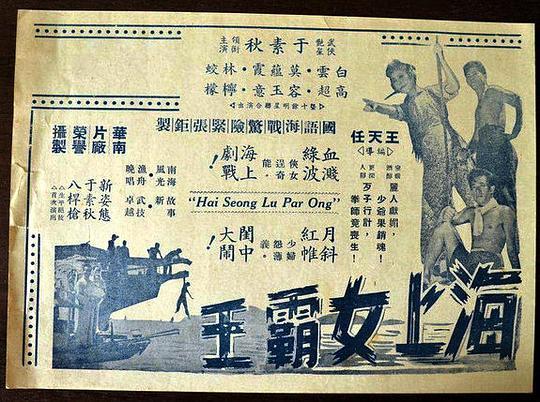 武俠艷星
于素秋
領銜主演
白雲·莫蘊霞·林蛟
高超·容玉意·檸檬
◁曁十餘明星聯合演出▷
國語海戰驚險緊張鉅製
王天任
◁編導▷
麗人獻媚，
少爺果銷魂！
歹子行計，
拳師竟喪生！
血濺
綠波
俠女
逞奇
能·
海上
劇戰！
南海 故事
風光·新
漁舟·武技
晚唱 卓越
華南
片廠
榮譽
攝製
新姿態
于素秋
八桿槍
"Hai Seong Lu Par Ong"
月斜
紅帷
少婦
怨薄
義·
閨中
大鬧！
海上女霸王